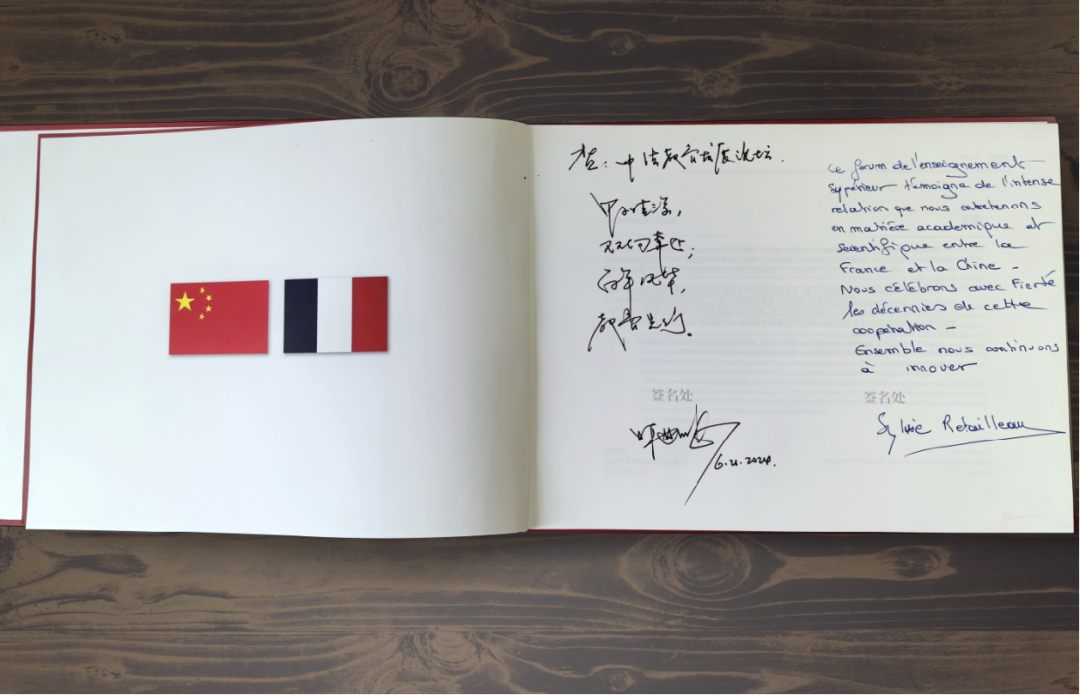 贺：中法教育发展论坛.
甲子情深，
双向奔赴；
百年风华，
教育先行。
签名处
6.21.2024.
Ce forum de l'enseignement
Supérieur témoigne de l'intense
relation que nous entretenons
en matière academique et
scientifique entre la
France et la Chine -
Nous célébrons avec Fierté
les décennies de cette
coopération -
Ensemble nous continuons
à innover
签名处
Sylvie Retailleau